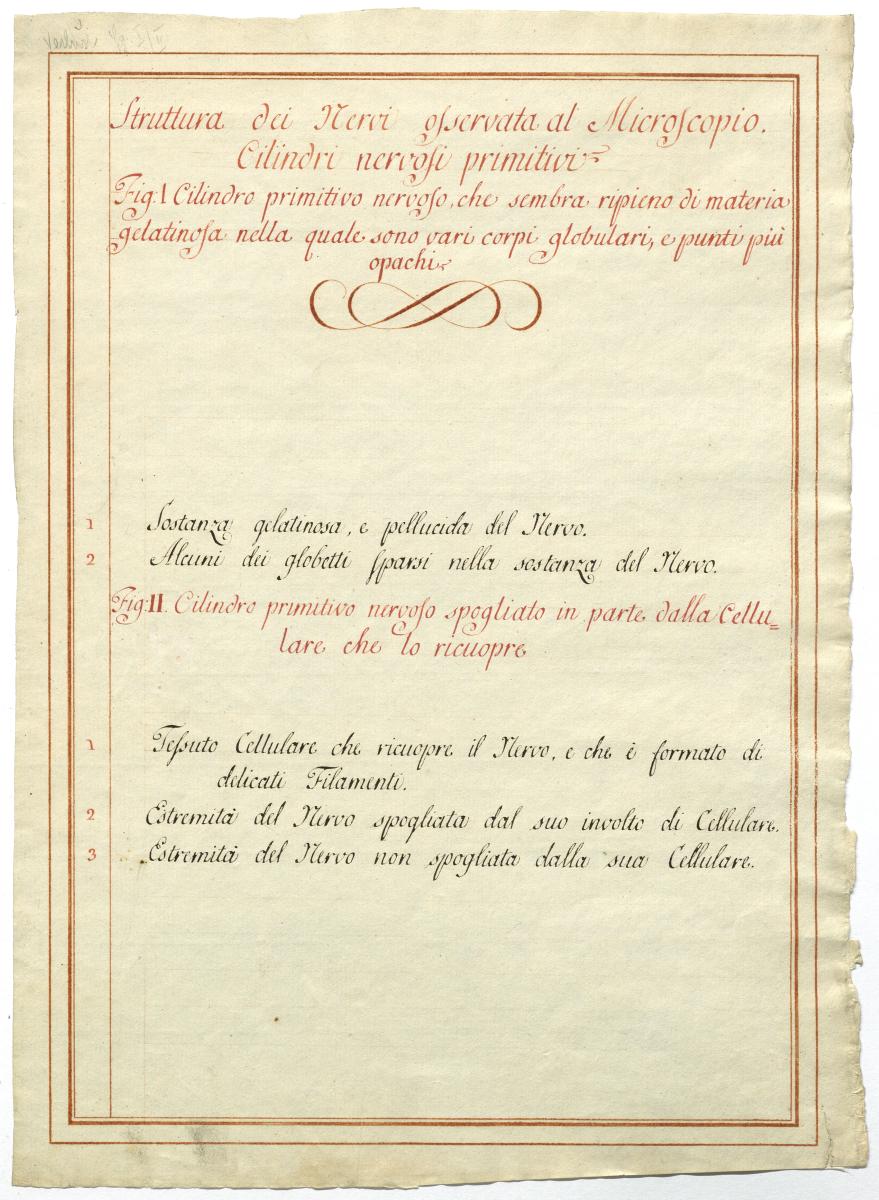 Struttura dei Nervi osservata al Microscopio.
Cilindri nervosi primitivi
Fig: I Cilindro primitivo nervoso, che sembra ripieno di materia
gelatinosa nella quale sono vari corpi globulari, e punti più
opachi
1 Sostanza gelatinosa, e pellucida del Nervo.
2 Alcuni dei globetti sparsi nella sostanza del Nervo.
Fig: II. Cilindro primitivo nervoso spogliato in parte dalla Cellu=
lare che lo ricuopre
1 Tessuto Cellulare che ricuopre il Nervo, e che è formato di
delicati Filamenti.
2 Estremità del Nervo spogliata dal suo involto di Cellulare.
3 Estremità del Nervo non spogliata dalla sua Cellulare.